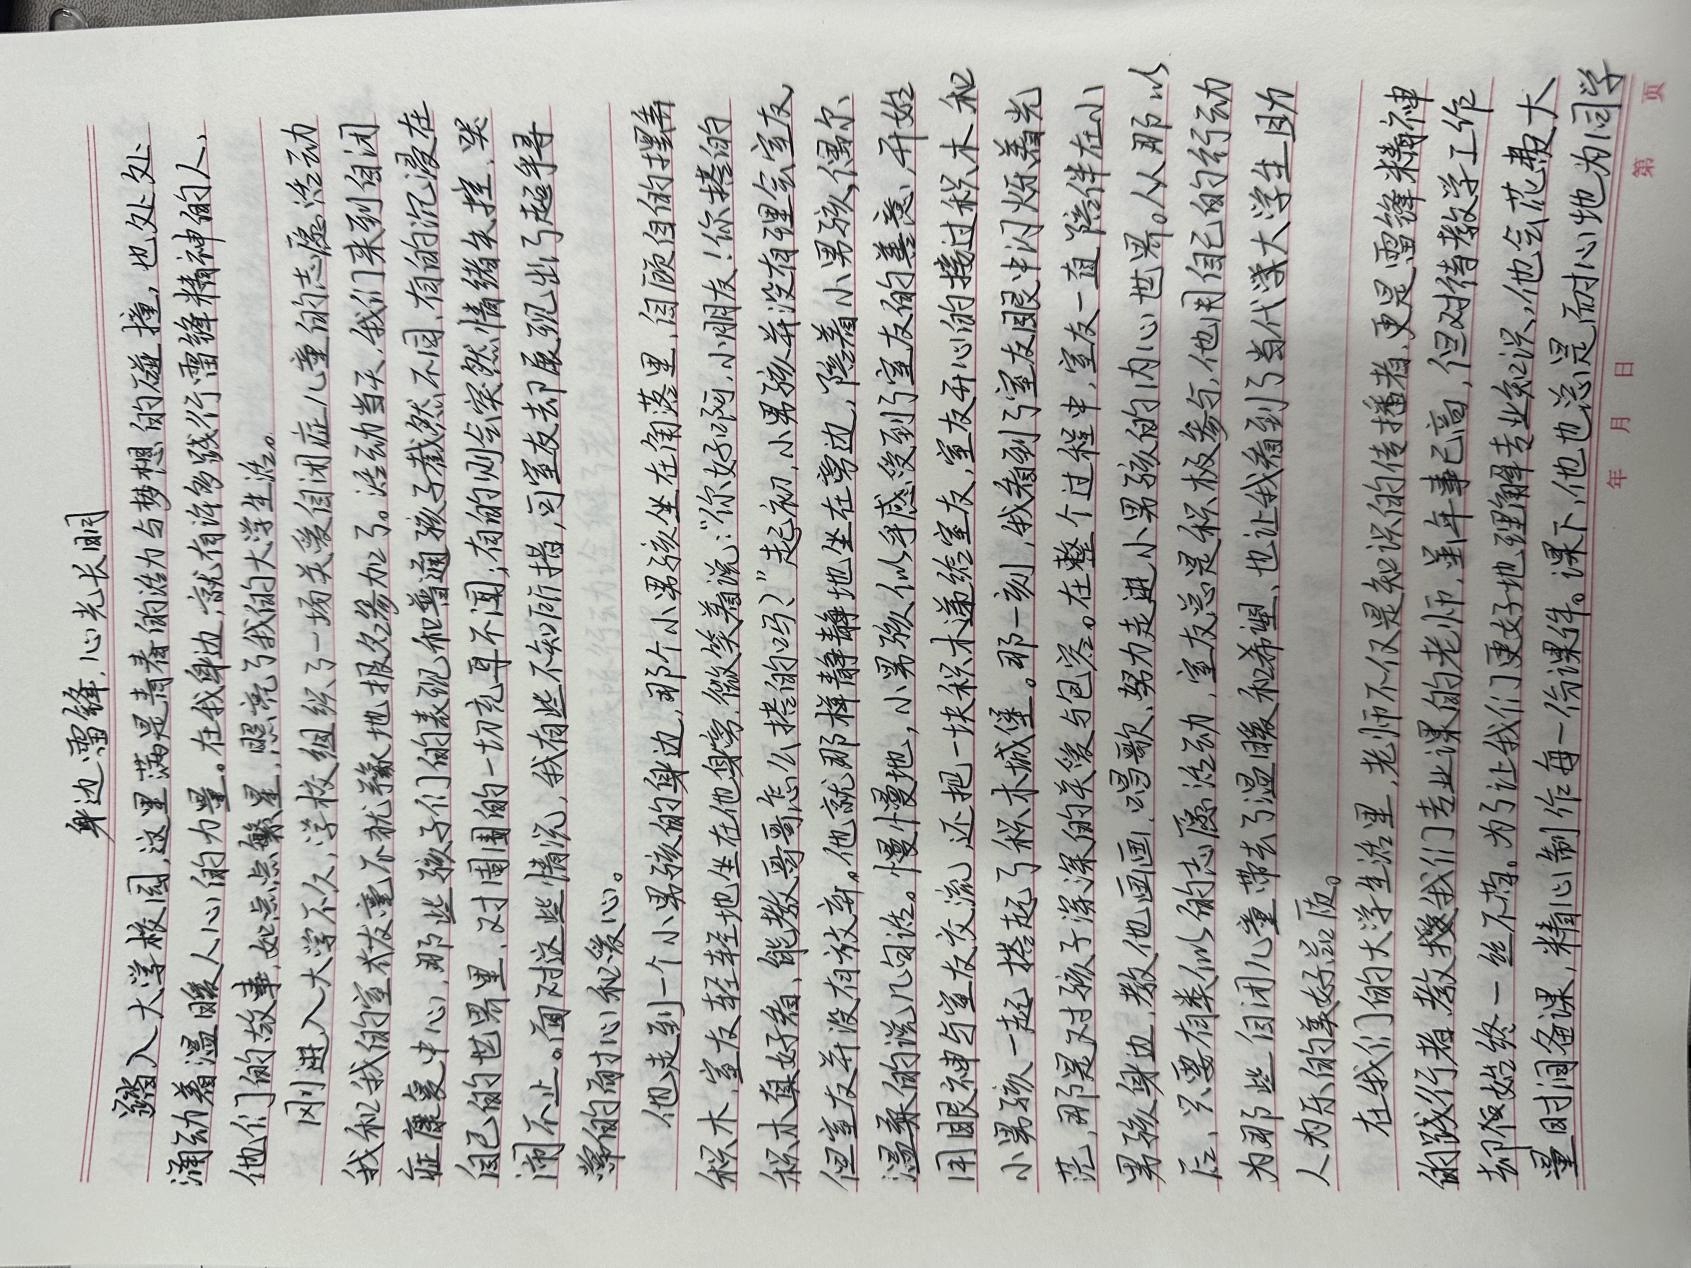 身边雷锋,心光长明
踏入大学校园,这里满是青春的活力与梦想的碰撞,也处处
涌动着温暖人心的力量。在我身边,就有许多践行雷锋精神的人,
他们的故事,如点点繁星,照亮了我的大学生活。
刚进入大学不久,学校组织了一场关爱自闭症儿童的志愿活动
我和我的室友毫不犹豫地报名参加了。活动当天,我们来到自闭
症康复中心,那些孩子们的表现和普通孩子截然不同,有的沉浸在
自己的世界里,对周围的一切充耳不闻;有的则会突然情绪失控,哭
闹不止。面对这些情况,我有些不知所措,可室友却展现出了超乎寻
常的耐心和爱心。
他走到一个小男孩的身边,那个小男孩坐在角落里,自顾自的摆弄
积木,室友轻轻地坐在他身旁,微笑着说:“你好啊,小朋友!你搭的
积木真好看,能教哥哥怎么搭的吗?”起初,小男孩并没有理会室友,
但室友并没有放弃。他就那样静静地坐在旁边,陪着小男孩,偶尔
温柔的说几句话。慢慢地,小男孩似乎感受到了室友的善意,开始
用眼神与室友交流,还把一块积木递给室友,室友开心的接过积木,和
小男孩一起搭起了积木城堡。那一刻,我看到了室友眼中闪烁着光
芒,那是对孩子深深的关爱与包容。在整个过程中,室友一直陪伴在小
男孩身边,教他画画、唱歌、努力走进小男孩的内心世界。从那以
后,只要有类似的志愿活动,室友总是积极参与,他用自己的行动
为那些自闭儿童带去了温暖和希望、也让我看到了当代大学生助
人为乐的美好品质。
在我们的大学生活里,老师不仅是知识的传播者,更是雷锋精神
的践行者,教授我们专业课的老师,虽年事已高,但对待教学工作
却始终一丝不苟。为了让我们更好地理解专业知识,他会花费大
量时间备课,精心制作每一份课件。课下,他也总是耐心地为同学
年 月 日
第 页